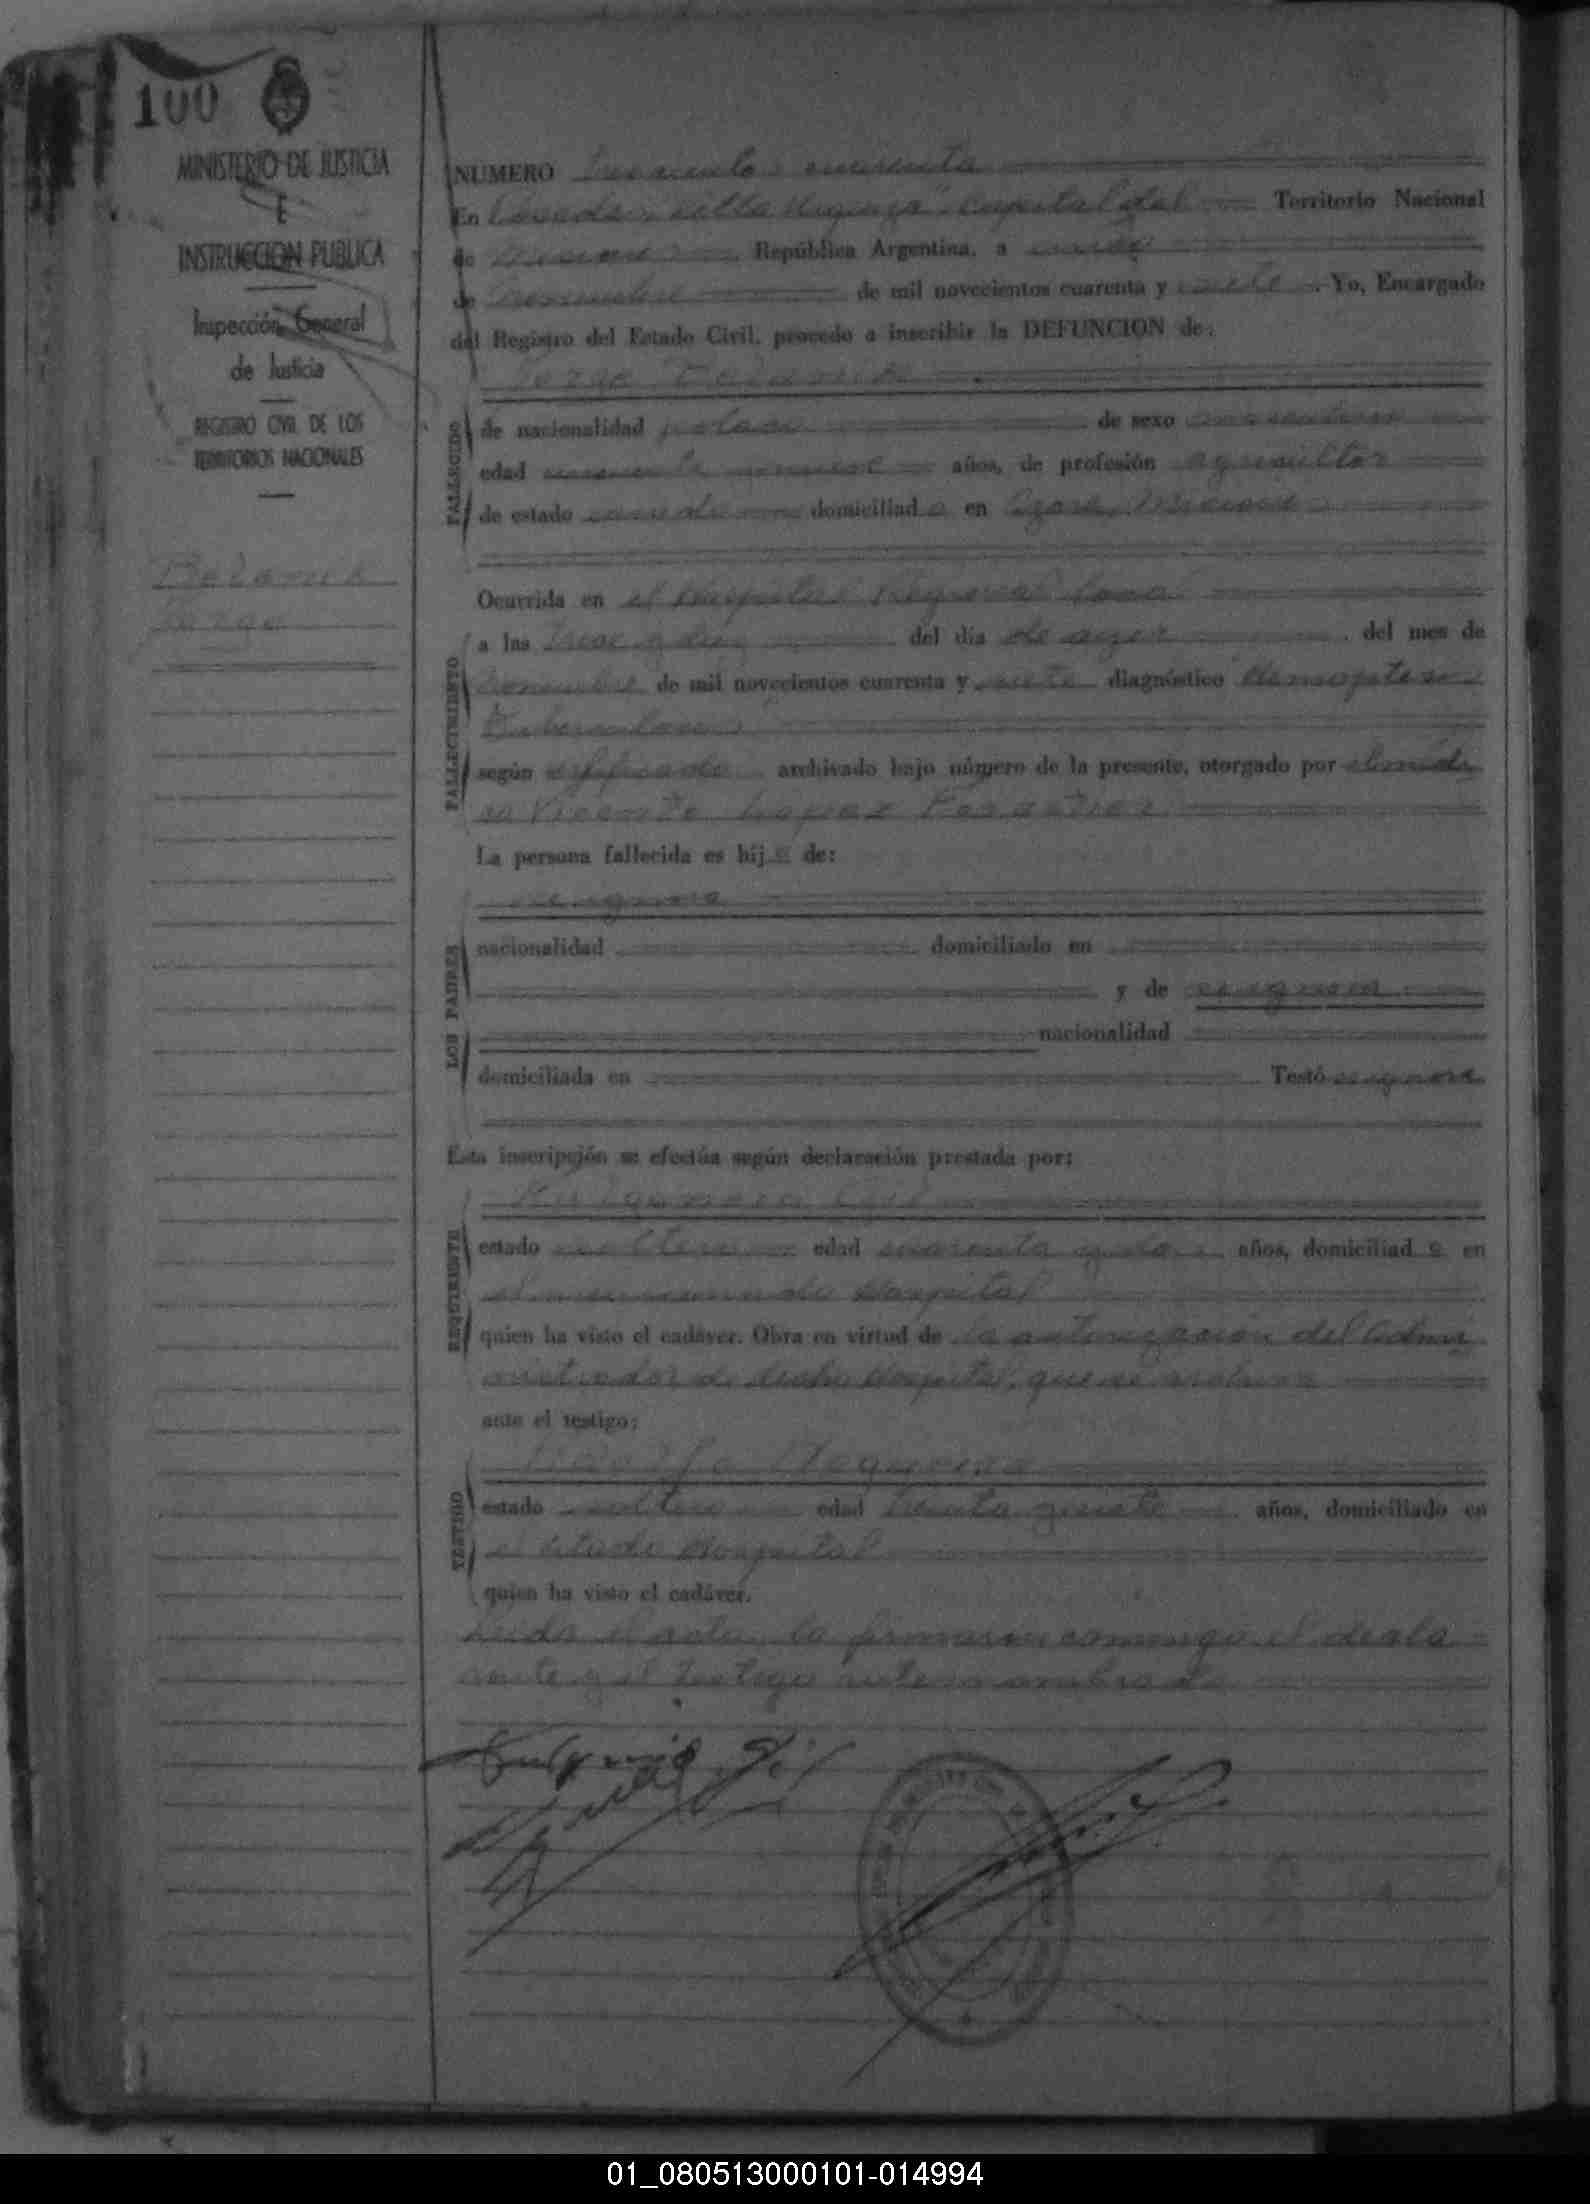 100
MINISTERIO DE JUSTICIA
E
INSTRUCCION PUBLICA
Inspección General
de Justicia
REGISTRO CIVIL DE LOS
TERRITORIOS NACIONALES
Jorge
NUMERO Trescientos cuarenta
En Posadas, capital del Territorio Nacional
de Misiones República Argentina, a
de Noviembre de mil novecientos cuarenta y siete. Yo, Encargado
del Registro del Estado Civil, procedo a inscribir la DEFUNCION de:
Jorge
FALLECIDO
de nacionalidad polaca de sexo masculino
edad nueve años, de profesión agricultor
de estado casado domiciliado en Azara, Misiones
FALLECIMIENTO
Ocurrida en el Hospital Regional local
a las trece y diez del día de ayer, del mes de
Noviembre de mil novecientos cuarenta y siete diagnóstico
según certificado archivado bajo número de la presente, otorgado por el médi
co Vicente Lopez
La persona fallecida es hijo de:
LOS PADRES
se ignora
nacionalidad domiciliado en
y de se ignora
nacionalidad
domiciliada en Testó se ignora
Esta inscripción se efectúa según declaración prestada por:
REQUIRENTE
Gil
estado soltero edad cuarenta y dos años, domiciliado en
el mencionado Hospital
quien ha visto el cadáver. Obra en virtud de la autorización del Admi
nistrador de dicho Hospital, que se archiva
ante el testigo:
TESTIGO
estado soltero edad treinta y siete años, domiciliado en
el citado Hospital
quien ha visto el cadáver.
Leída el acta, la firmaron conmigo el decla
rante y el testigo antes nombrado
01_080513000101-014994